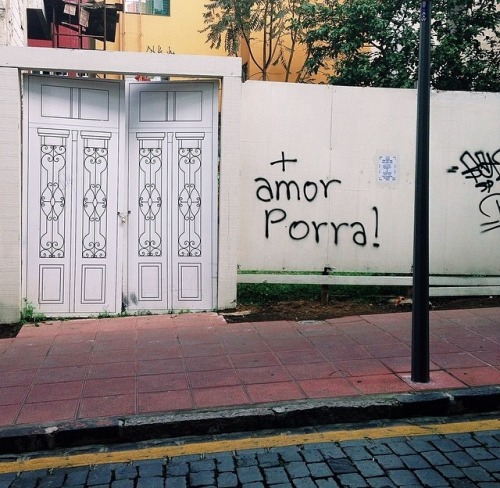 +
amor
Porra!